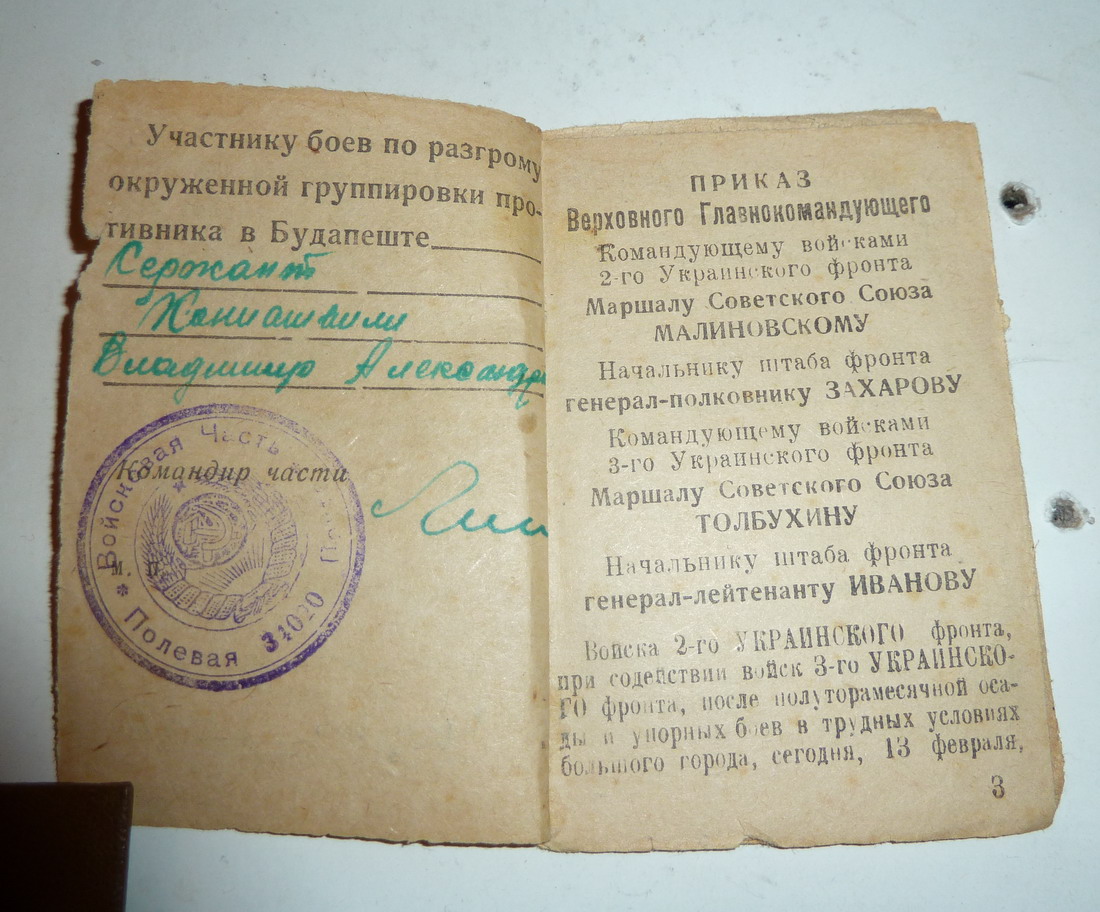 Участнику боев по разгрому
окруженной группировки про-
тивника в Будапеште
Сержант
Владимир Александр
Командир части
М. П.
Войсковая Часть
* Полевая
ПРИКАЗ
Верховного Главнокомандующего
Командующему войсками
2-го Украинского фронта
Маршалу Советского Союза
МАЛИНОВСКОМУ
Начальнику штаба фронта
генерал-полковнику ЗАХАРОВУ
Командующему войсками
3-го Украинского фронта
Маршалу Советского Союза
ТОЛБУХИНУ
Начальнику штаба фронта
генерал-лейтенанту ИВАНОВУ
Войска 2-го УКРАИНСКОГО фронта,
при содействии войск 3-го УКРАИНСКО-
ГО фронта, после полуторамесячной оса-
ды и упорных боев в трудных условиях
большого города, сегодня, 13 февраля,
3